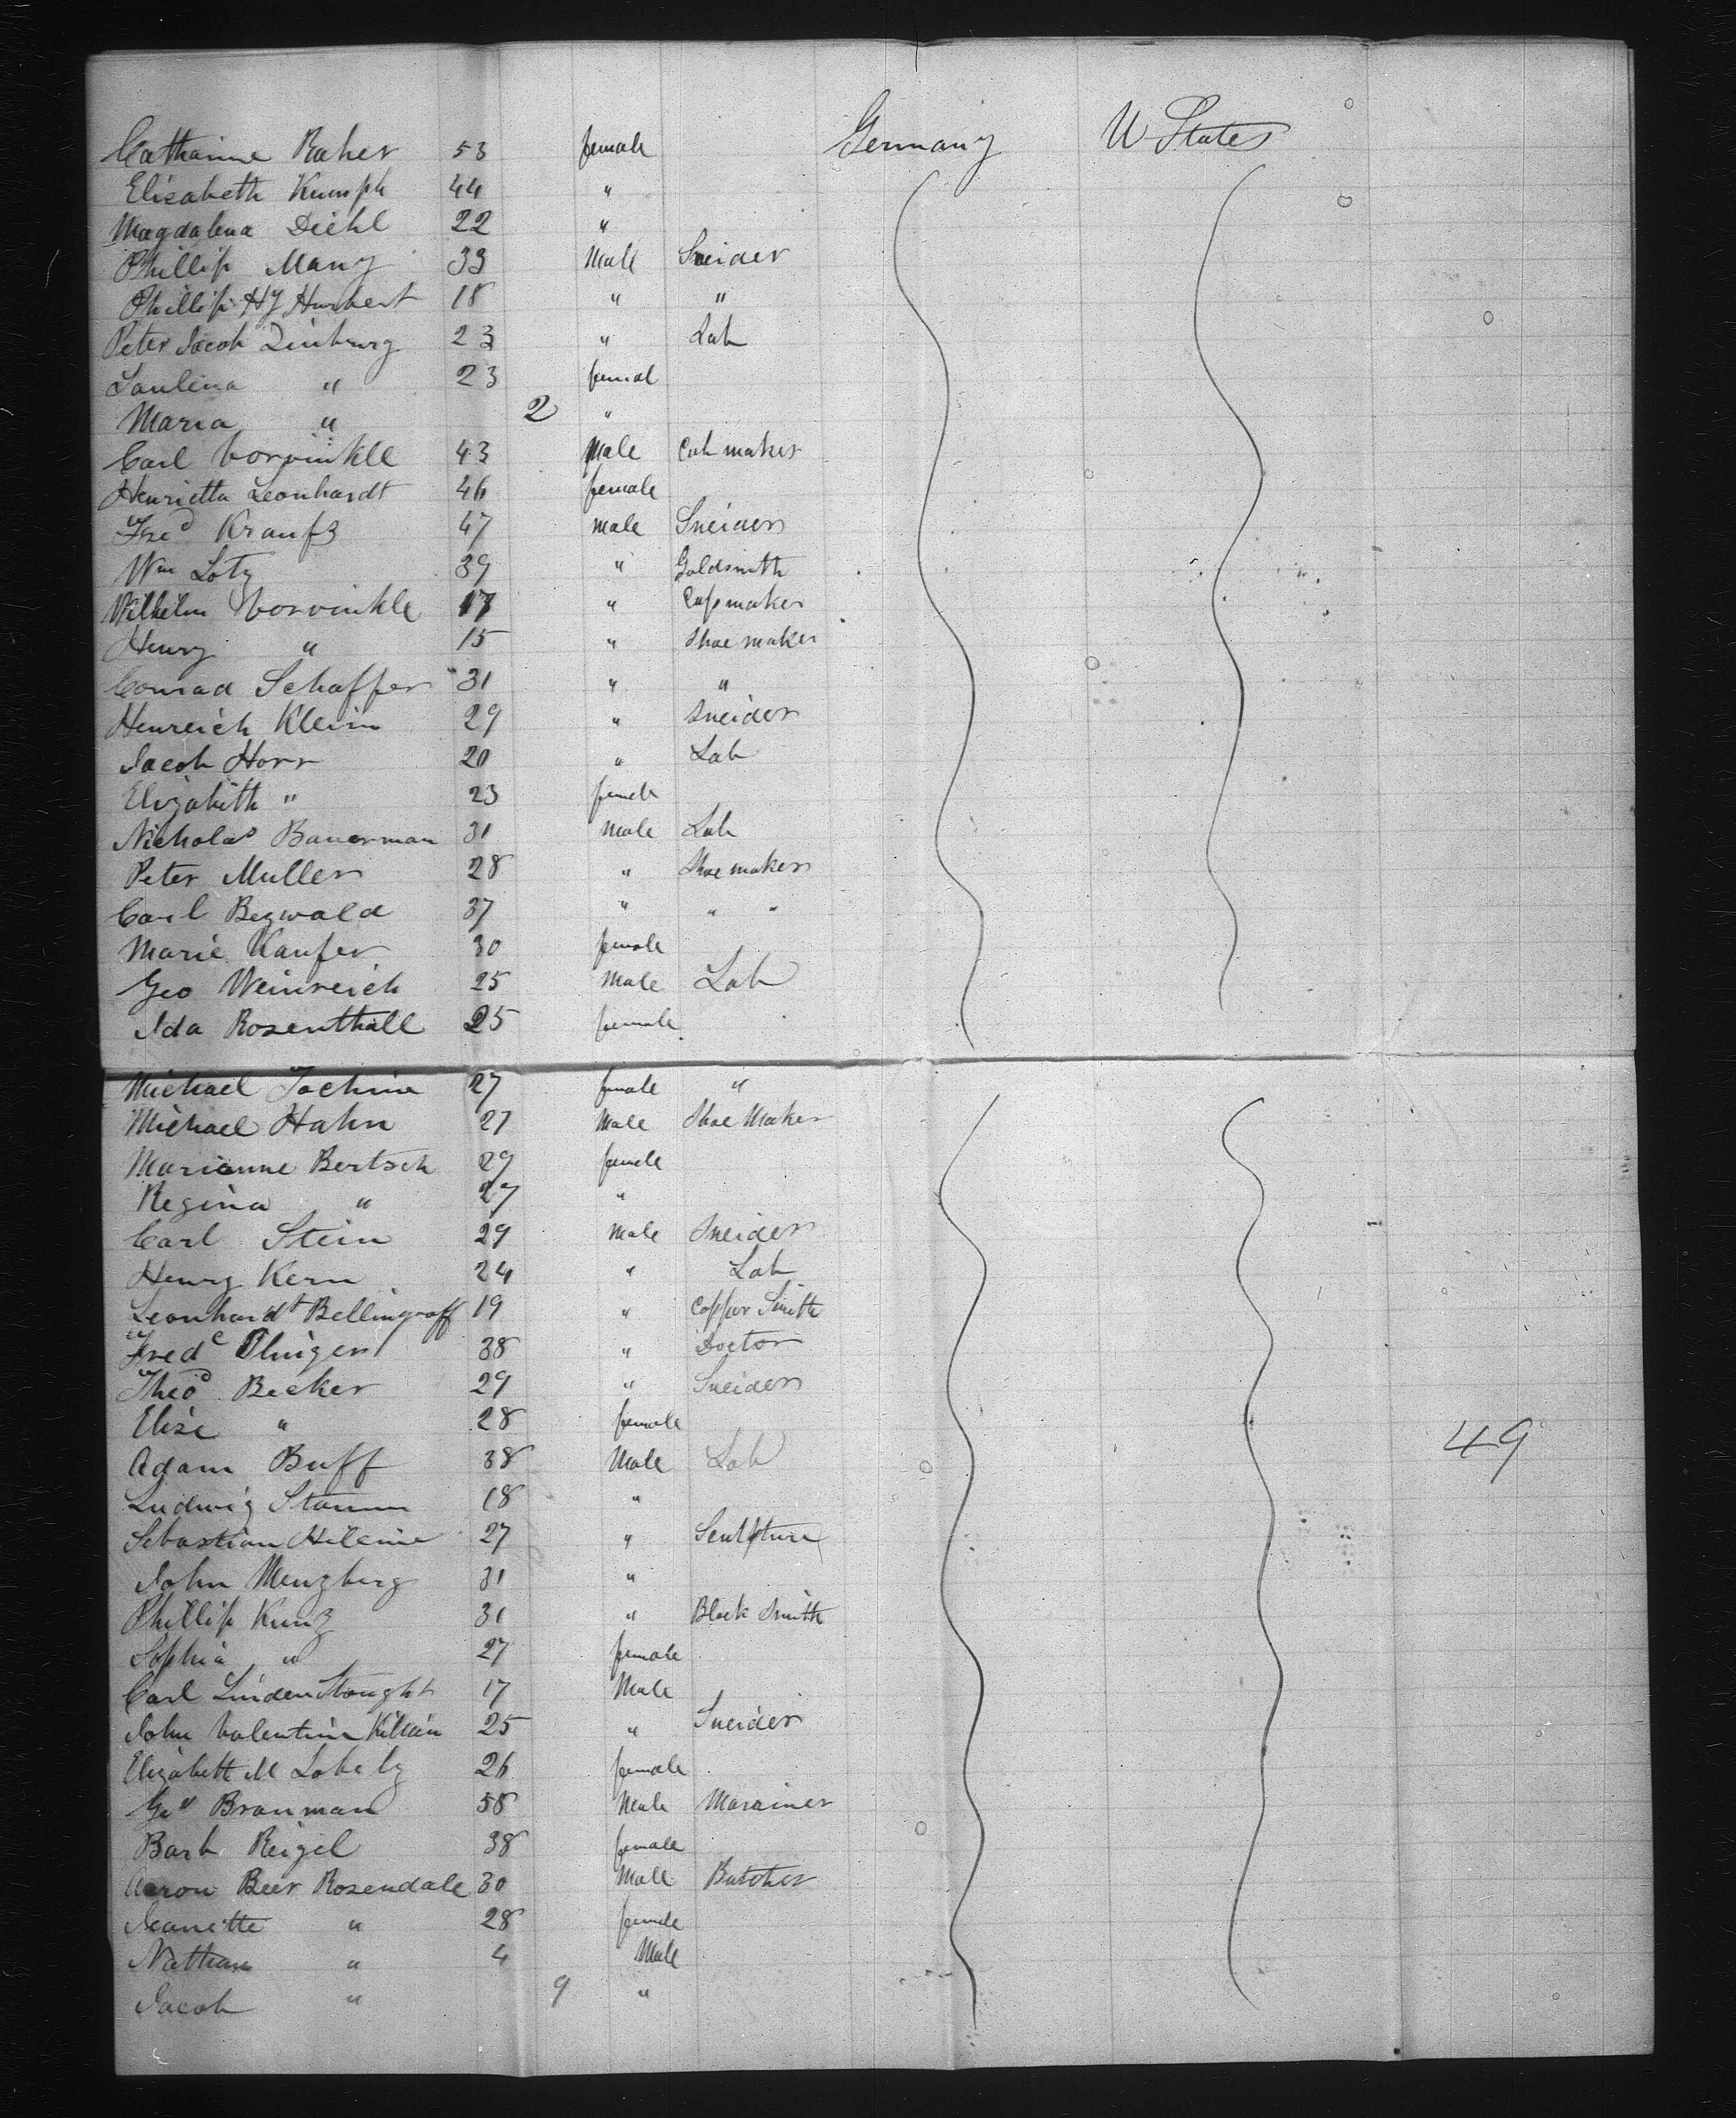 Catharine Raher 53 female Germany U States
Elisabeth Kumph 44 "
Magdalena Diehl 22 "
Phillip Many 33 Male Sneider
Phillip Hy Hurbert 18 " "
Peter Jacob Zinburg 23 " Lab
Paulina " 23 femal
Maria " 2 "
Carl Vorvinkle 43 Male Cab maker
Henrietta Leonhardt 46 female
Fred Kraufz 47 male Sneider
Wm Lotz 39 " Goldsmith
Wilhelm Vorvinkle 17 " Capmaker
Henry " 15 " Shoe maker
Conrad Schaffer 31 " "
Henreich Klein 29 " Sneider
Jacob Horr 20 " Lab
Elizabith " 23 female
Nicholas Bauerman 31 Male Lab
Peter Muller 28 " Shoe maker
Carl Begwald 37 " " "
Marie Kaufer 30 female
Geo Weinreich 25 Male Lab
Ida Rosenthall 25 female
Michael Jochine 27 female "
Michael Hahn 27 Male Shoe Maker
Marianne Bertsch 29 female
Regina " 27 "
Carl Stein 29 Male Sneider
Henry Kern 24 " Lab
Leonhardt Bellingraff 19 " Copper Smith
Fred Olinger 38 " Doctor
Theod Becker 29 " Sneider
Elise " 28 female
Adam Buff 38 Male Lab 49
Ludwig Stamm 18 "
Sebastian Hileine 27 " Sculpture
John Menzberg 31 "
Phillip Kunz 31 " Black Smith
Sophia " 27 female
Carl Linden Stought 17 Male
John Valentin Kilian 25 " Sneider
Elizabeth M 26 female
Geo Brauman 58 Male Marainer
Barb Reigel 38 female
Aaron Beer Rosendale 30 Male Butcher
Jeanette " 28 female
Nathan " 4 Male
Jacob " 9 "